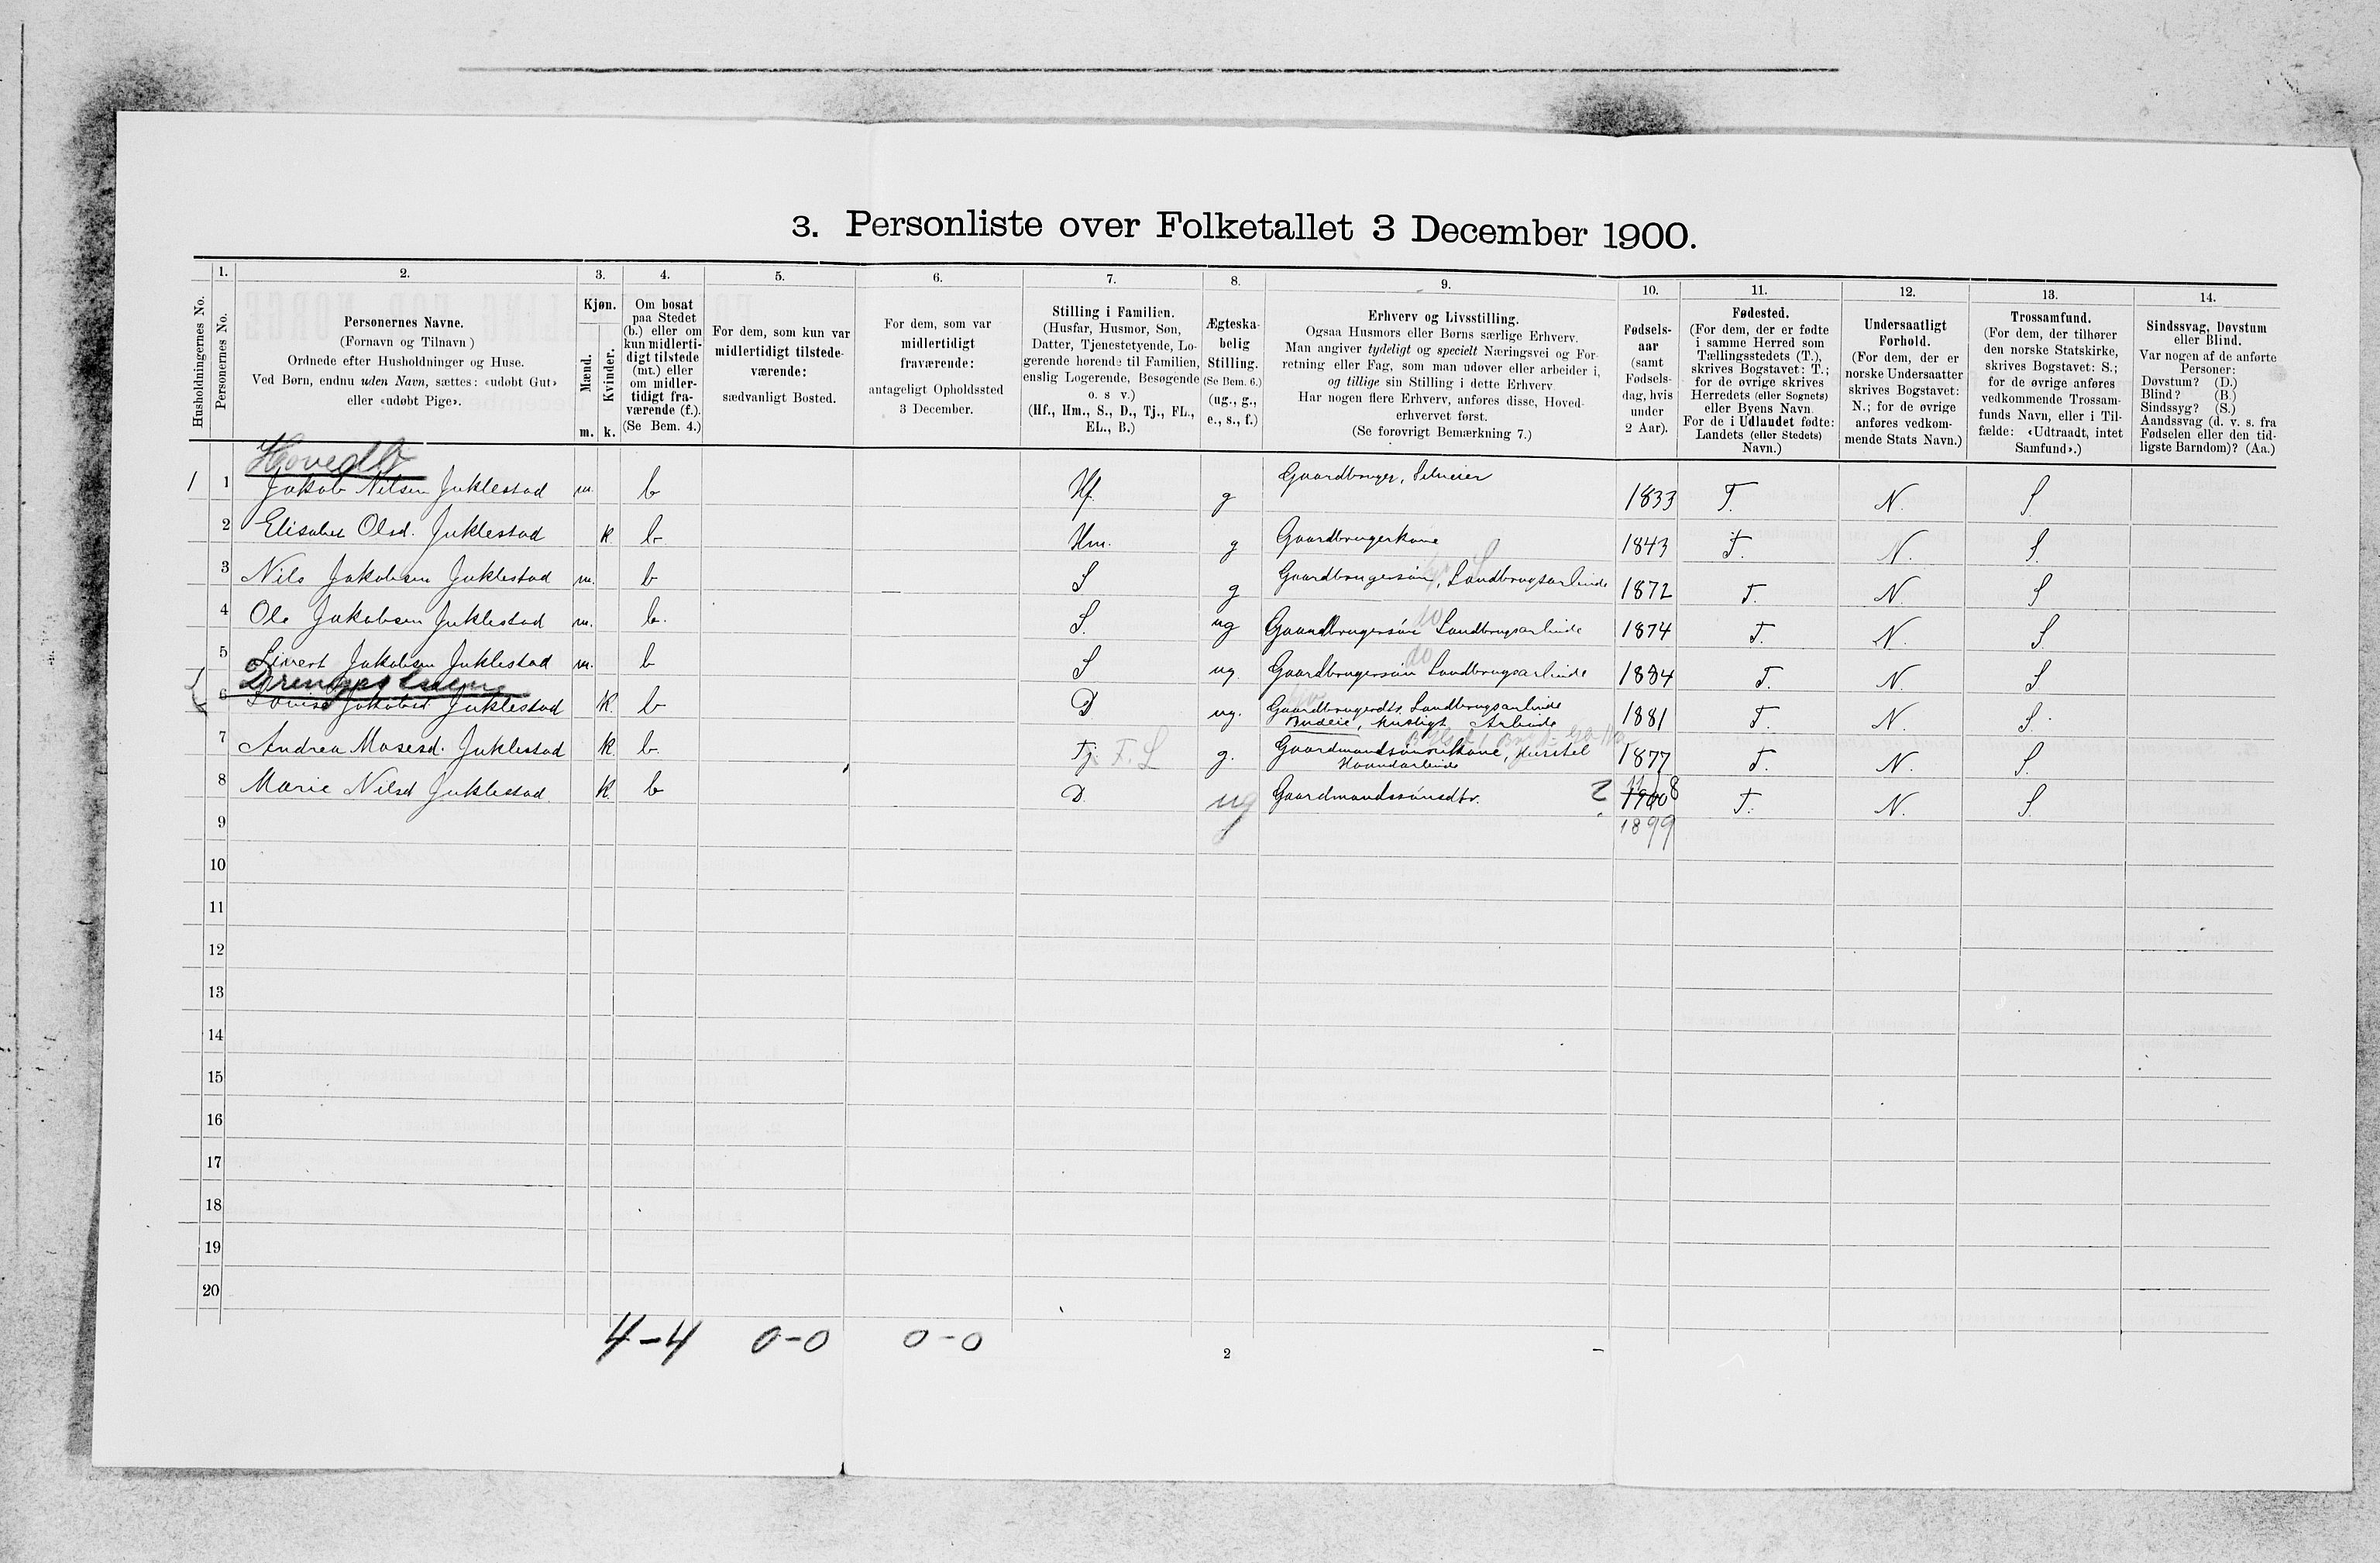 3. Personliste over Folketallet 3 December 1900.
Husholdningernes No.
1.
Personernes No.
2.
Personernes Navne.
(Fornavn og Tilnavn)
Ordnede efter Husholdninger og Huse.
Ved Børn, endnu uden Navn, sættes: «udøbt Gut»
eller «udøbt Pige».
3.
Kjøn.
Mænd.
Kvinder.
m. k.
4.
Om bosat
paa Stedet
(b.) eller om
kun midlerti-
digt tilstede
(mt.) eller
om midler-
tidigt fra-
værende (f.).
(Se Bem. 4.)
5.
For dem, som kun var
midlertidigt tilstede-
værende:
sædvanligt Bosted.
6.
For dem, som var
midlertidigt
fraværende:
antageligt Opholdssted
3 December.
7.
Stilling i Familien.
(Husfar, Husmor, Søn,
Datter, Tjenestetyende, Lo-
gerende hørende til Familien,
enslig Logerende, Besøgende
o. s v.)
(Hf., Hm., S., D., Tj., FL.,
EL., B.)
8.
Ægteska-
belig
Stilling.
(Se Bem. 6.)
(ug., g.,
e., s., f.)
9.
Erhverv og Livsstilling.
Ogsaa Husmors eller Børns særlige Erhverv.
Man angiver tydeligt og specielt Næringsvei og For-
retning eller Fag, som man udøver eller arbeider i,
og tillige sin Stilling i dette Erhverv.
Har nogen flere Erhverv, anføres disse, Hoved-
erhvervet først.
(Se forøvrigt Bemærkning 7.)
10.
Fødsels-
aar
(samt
Fødsels-
dag, hvis
under
2 Aar).
11.
Fødested.
(For dem, der er fødte
i samme Herred som
Tællingsstedets (T.),
skrives Bogstavet: T.;
for de øvrige skrives
Herredets (eller Sognets)
eller Byens Navn.
For de i Udlandet fødte:
Landets (eller Stedets)
Navn.)
12.
Undersaatligt
Forhold.
(For dem, der er
norske Undersaatter
skrives Bogstavet:
N.; for de øvrige
anføres vedkom-
mende Stats Navn.)
13.
Trossamfund.
(For dem, der tilhører
den norske Statskirke,
skrives Bogstavet: S.;
for de øvrige anføres
vedkommende Trossam-
funds Navn, eller i Til-
fælde: «Udtraadt, intet
Samfund».)
14.
Sindssvag, Døvstum
eller Blind.
Var nogen af de anførte
Personer:
Døvstum? (D.)
Blind? (B.)
Sindssyg? (S.)
Aandssvag (d. v. s. fra
Fødselen eller den tid-
ligste Barndom)? (Aa.)
Hovedb
1 1 Jakob Nilsen Juklestad m. b Hf. g Gaardbruger, Selveier 1833 T. N. S.
2 Elisabet Olsd. Juklestad k b Hm. g Gaardbrugerkone 1843 T. N. S.
3 Nils Jakobsen Juklestad m. b S g Gaardbrugersøn, Landbrugsarbeide 1872 T. N. S
4 Ole Jakobsen Juklestad m. b. S. ug Gaardbrugersøn Landbrugsarbeide do 1874 T. N. S.
5 Sivert Jakobsen Juklestad m. b S ug. Gaardbrugersøn Landbrugsarbeide do 1884 T. N. S
Drengestuen
6 Lovise Jakobsd Juklestad k. b D ug. Gaardbrugerdtr. Landbrugsarbeide
Budeie, Husligt Arbeide 1881 T. N. S.
7 Andrea Mosesd. Juklestad k. b. Tj. F. L g. Gaardmandsønnekone, Husstel
Haandarbeide 1877 T. N. S.
8 Marie Nilsd Juklestad. k. b D. ug Gaardmandssønsdtr. 2 1900 8 T. N. S.
9 1899
10
11
12
13
14
15
16
17
18
19
20
4-4 0-0 0-0
2